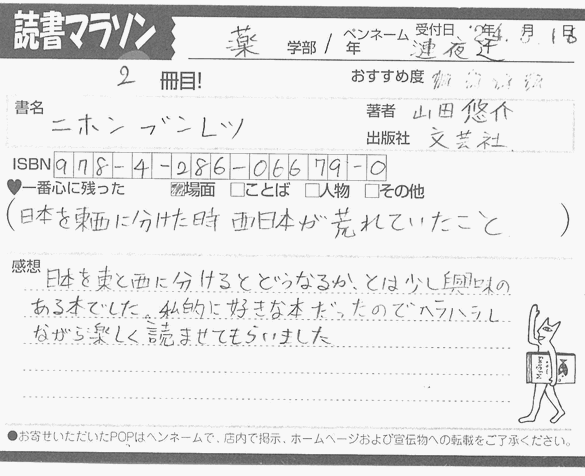 読書マラソン
薬 学部/ 年 ペンネーム 連夜
受付日 年 月 18日
2 冊目!
おすすめ度
書名
ニホンブンレツ
著者 山田悠介
出版社 文芸社.
ISBN 978-4-286-06679-0
♥一番心に残った ☑場面 □ことば □人物 □その他
(日本を東西に分けた時 西日本が荒れていたこと)
感想
日本を東と西に分けるとどうなるか、とは少し興味の
ある本でした。私的に好きな本だったのでハラハラし
ながら楽しく読ませてもらいました
●お寄せいただいたPOPはペンネームで、店内で掲示、ホームページおよび宣伝物への転載をご了承ください。